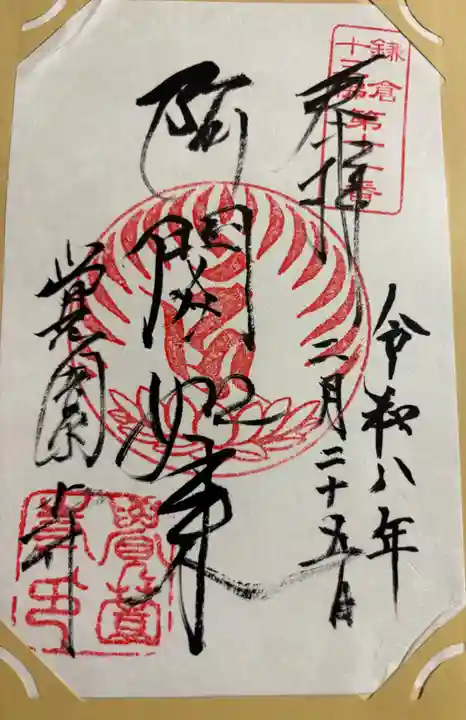 鎌倉
十三佛第十一番
奉拝
令和八年
二月二十五日
阿閦如来
覚園寺
覺園寺印